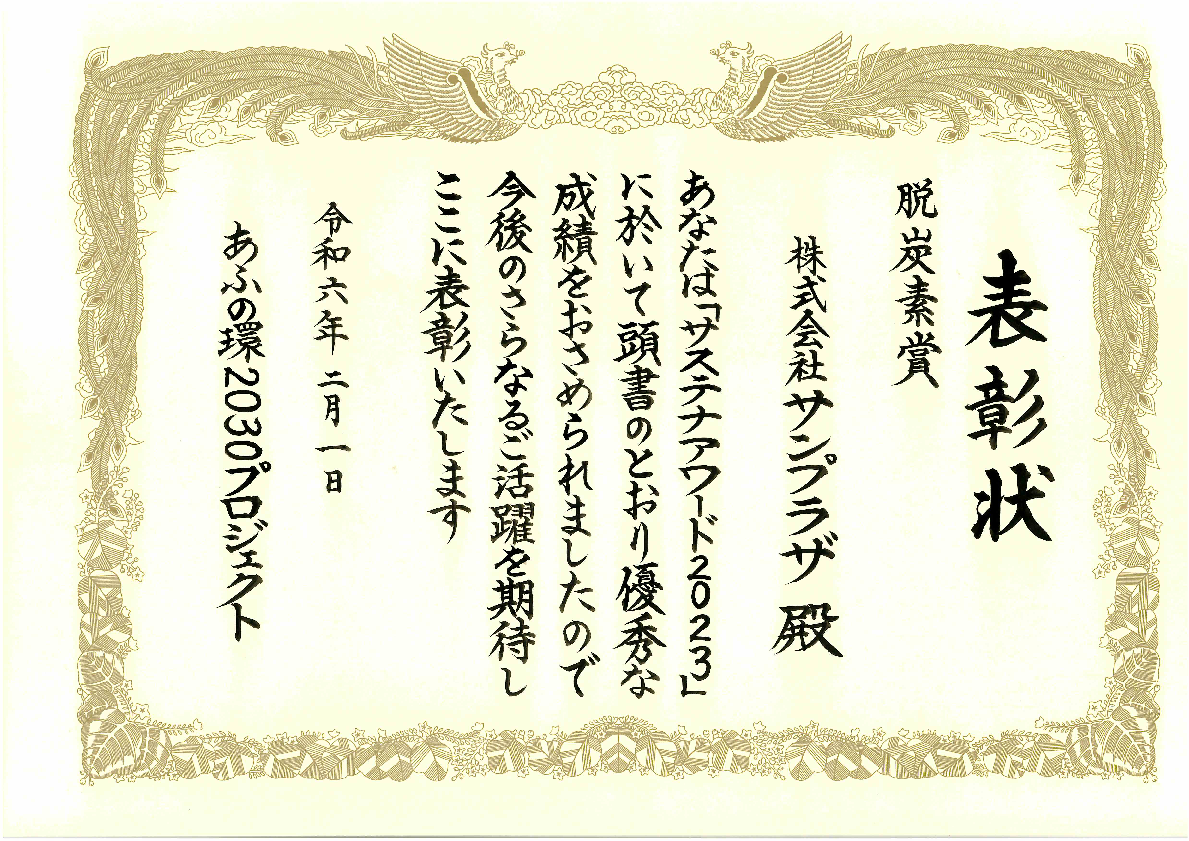 表彰状
脱炭素賞
株式会社サンプラザ 殿
あなたは「サステナアワード2023」
に於いて頭書のとおり優秀な
成績をおさめられましたので
今後のさらなるご活躍を期待し
ここに表彰いたします
令和六年二月一日
あふの環2030プロジェクト